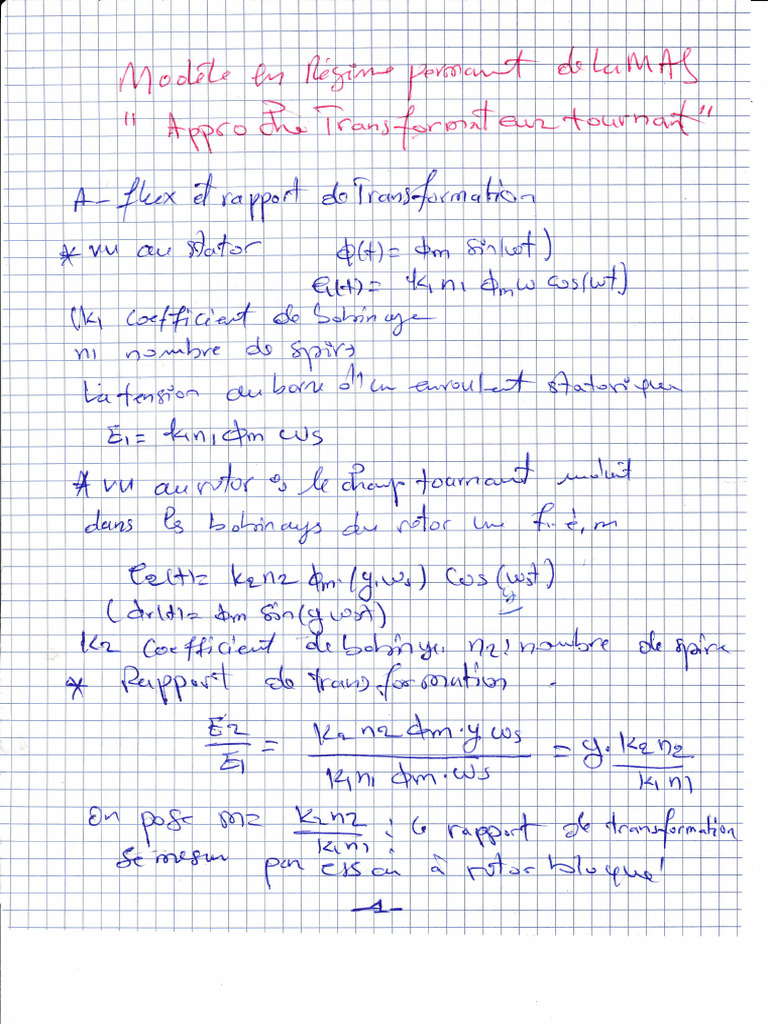 Modèle en Régime permant de la MAS
" Approche Transformateur tournant "
A - flux et rapport de Transformation
* vu au stator ϕ(t) = ϕm sin(wt)
e1(t) = k1 n1 ϕm w cos(wt)
(k1 coefficient de bobinage
n1 nombre de spires
La tension au borne d'un enroulent statorique
E1 = k1 n1 ϕm ws
* vu au rotor : le champ tournant induit
dans les bobinages du rotor une f.é.m
e2(t) = k2 n2 ϕm.(g.ws) cos(wst)
g
(ϕr(t) = ϕm sin(g wst)
k2 coefficient de bobinage. n2: nombre de spire
* Rapport de transformation.
E2/E1 = k2 n2 ϕm.g ws / k1 n1 ϕm.ws = g. k2 n2 / k1 n1
On pose m = k2 n2 / k1 n1 : le rapport de transformation
se mesure par essai à rotor bloqué
-1-